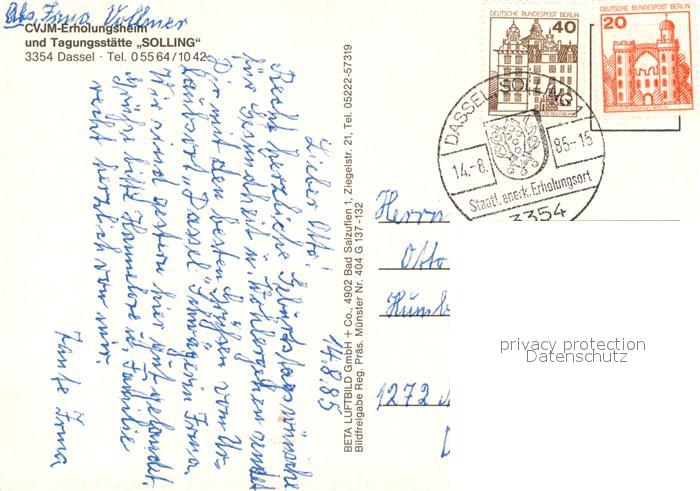 Abs. Irma Vollmer
CVJM-Erholungsheim
und Tagungsstätte „SOLLING“
3354 Dassel · Tel. 0 55 64/10 42
14.8.85
Lieber Otto!
Recht herzliche Geburtstagswünsche
für Gesundheit u. Wohlergehen sendet
Dir mit den besten Grüßen vom Ur-
laubsort „Dassel“ Schwägerin Irma.
Wir sind gestern hier gut gelandet.
Grüße bitte Hannelore u. Familie
recht herzlich von mir.
Tante Irma
BETA LUFTBILD GmbH + Co., 4902 Bad Salzuflen 1, Ziegelstr. 21, Tel. 05222-57319
Bildfreigabe Reg. Präs. Münster Nr. 404 G 137-132
DEUTSCHE BUNDESPOST BERLIN
40
DEUTSCHE BUNDESPOST BERLIN
20
DASSEL, SOLLING 1
14.-8. 85-15
Staatl. anerk. Erholungsort
3354
Herrn
Otto
Humb
1272
privacy protection
Datenschutz